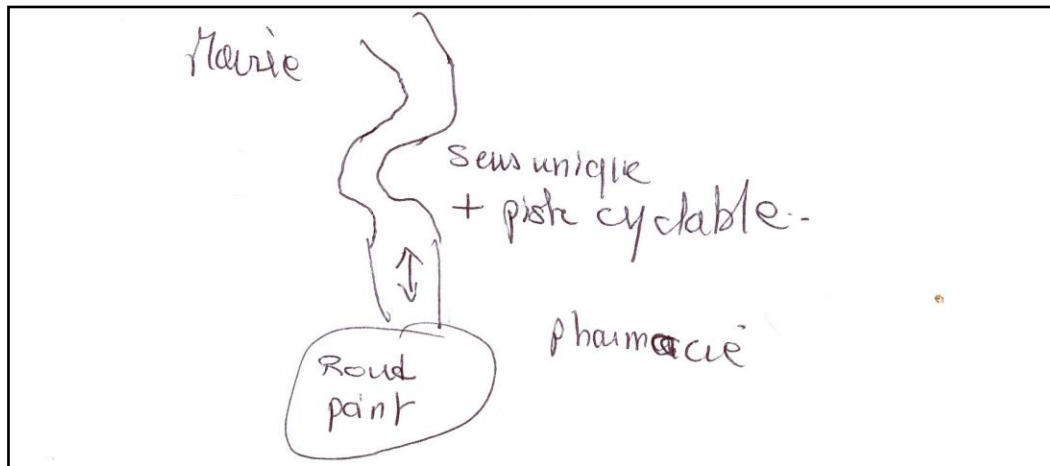 Mairie
sens unique
+ piste cyclable.
pharmacie
Rond
point